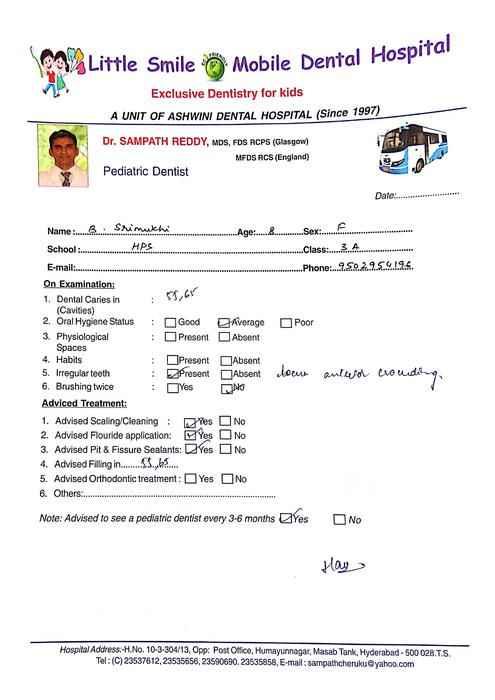 Little Smile ECO FRIENDLY Mobile Dental Hospital
Exclusive Dentistry for kids
A UNIT OF ASHWINI DENTAL HOSPITAL (Since 1997)
Dr. SAMPATH REDDY, MDS, FDS RCPS (Glasgow)
MFDS RCS (England)
Pediatric Dentist
Date:
Name: B. Srimukhi Age: 8 Sex: F
School: HPS Class: 3 A
E-mail: Phone: 9502954196
On Examination:
1. Dental Caries in (Cavities) : 55,65
2. Oral Hygiene Status : Good Average Poor
3. Physiological Spaces : Present Absent
4. Habits : Present Absent
5. Irregular teeth : Present Absent anterior crowding.
6. Brushing twice : Yes No
Adviced Treatment:
1. Advised Scaling/Cleaning : Yes No
2. Advised Flouride application: Yes No
3. Advised Pit & Fissure Sealants: Yes No
4. Advised Filling in 55,65
5. Advised Orthodontic treatment : Yes No
6. Others:
Note: Advised to see a pediatric dentist every 3-6 months Yes No
Hospital Address:-H.No. 10-3-304/13, Opp: Post Office, Humayunnagar, Masab Tank, Hyderabad - 500 028.T.S.
Tel : (C) 23537612, 23535656, 23590690. 23535858, E-mail : sampathcheruku@yahoo.com